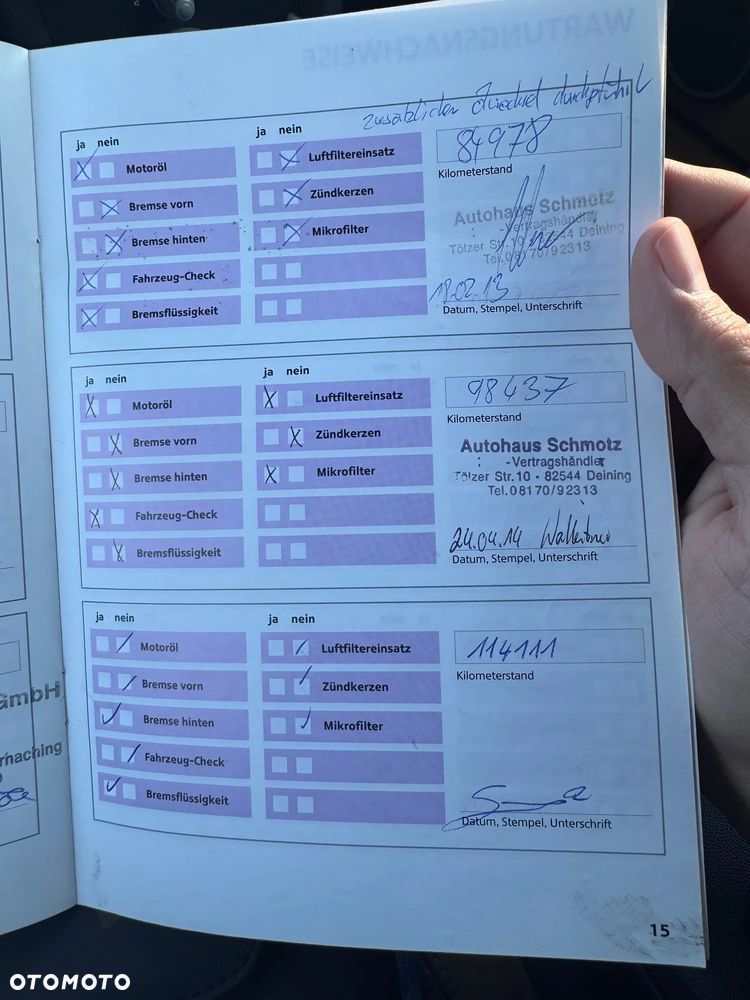 WARTUNGSNACHWEISE
zusäblichen durchgeführt
ja nein
ja nein
84978
Motoröl
Luftfiltereinsatz
Kilometerstand
Bremse vorn
Zündkerzen
Autohaus Schmotz
Bremse hinten
Mikrofilter
-Vertragshändler
Tölzer Str.10 - 82544 Deining
Tel.08170/92313
Fahrzeug-Check
18.02.13
Bremsflüssigkeit
Datum, Stempel, Unterschrift
ja nein
ja nein
98437
Motoröl
Luftfiltereinsatz
Kilometerstand
Bremse vorn
Zündkerzen
Autohaus Schmotz
-Vertragshändler
Bremse hinten
Mikrofilter
Tölzer Str.10 - 82544 Deining
Tel.08170/92313
Fahrzeug-Check
24.04.14
Bremsflüssigkeit
Datum, Stempel, Unterschrift
ja nein
ja nein
114111
Motoröl
Luftfiltereinsatz
Kilometerstand
Bremse vorn
Zündkerzen
GmbH
Bremse hinten
Mikrofilter
rhaching
Fahrzeug-Check
Bremsflüssigkeit
Datum, Stempel, Unterschrift
15
OTOMOTO